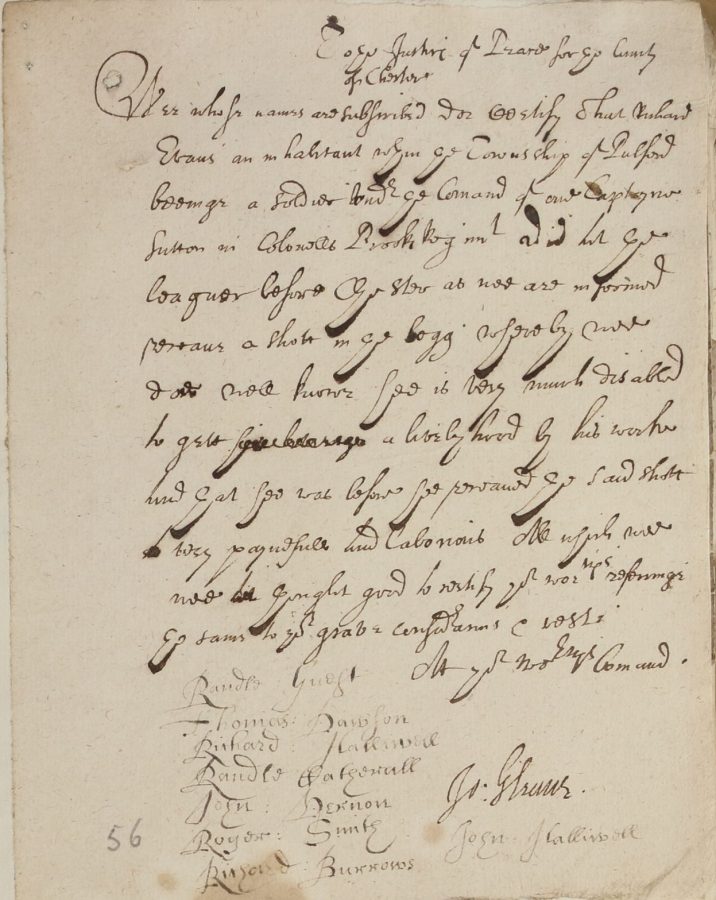 To ye Justices of Peace for ye County
of Chester
Wee whose names are subscribed doe Certify That Richard
Evans an inhabitant within ye Township of Pulford
beeinge a soldier undr ye Comand of one Captayne
Sutton in Colonells Brook Regimt did at ye
leaguer before Chester as wee are informed
receave a shott in ye legg whereby wee
doe well knowe hee is very much disabled
to gett a livelyhood by his worke
And yat hee was before hee receaved ye said shott
very paynefull And Laborious All which wee
wee thought good to testify yor worips referringe
ye same to yor grave consideracions & rest
At yor worips Comand.
Randle Guest
Thomas: Dawson
Richard: Halliwell
Randle Catherall
John: Vernon
Jo: Glave.
Roger: Smith
John: Halliwell
Richard: Burrows
56